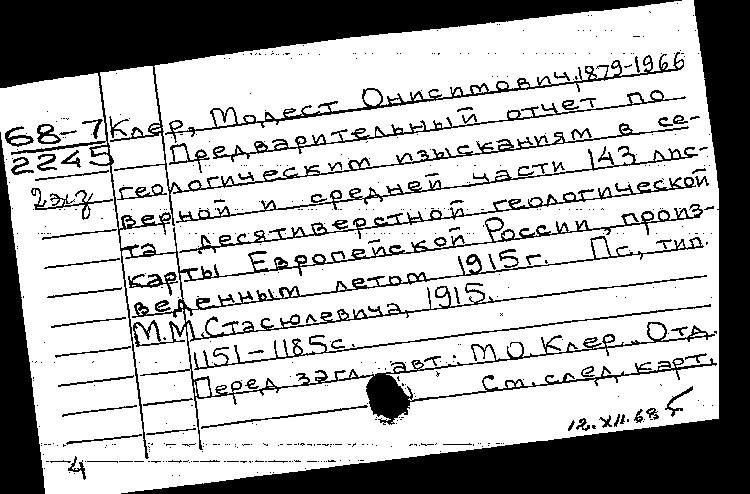 68-7
2245
2 экз
Клер, Модест Онисимович, 1879-1966
Предварительный отчет по
геологическим изысканиям в се-
верной и средней части 143 лис-
та десятиверстной геологической
карты Европейской России, произ-
веденным летом 1915 г. Пс, тип.
М.М. Стасюлевича, 1915.
1151-1185 с.
Перед загл. авт.: М.О. Клер. Отд.
См. след. карт.
12.XII.68
4